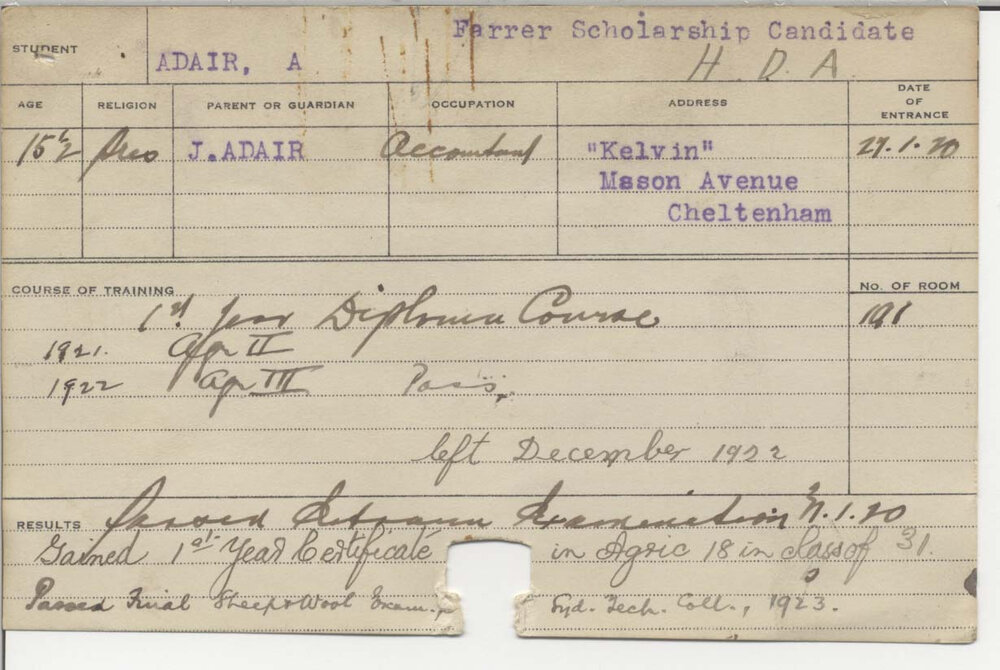 Farrer Scholarship Candidate
STUDENT ADAIR, A H. D. A
AGE RELIGION PARENT OR GUARDIAN OCCUPATION ADDRESS DATE OF ENTRANCE
15½ Pres J.ADAIR Accountant "Kelvin" 27.1.20
Mason Avenue
Cheltenham
COURSE OF TRAINING No. OF ROOM
1st year Diploma Course 191
1921. Agr II
1922 Agr III Pass.
left December 1922
RESULTS Passed Entrance Examination 1.20
Gained 1st Year Certificate in Agric 18 in class of 31.
Passed Final Sheep & Wool Exam. Syd. Tech. Coll., 1923.